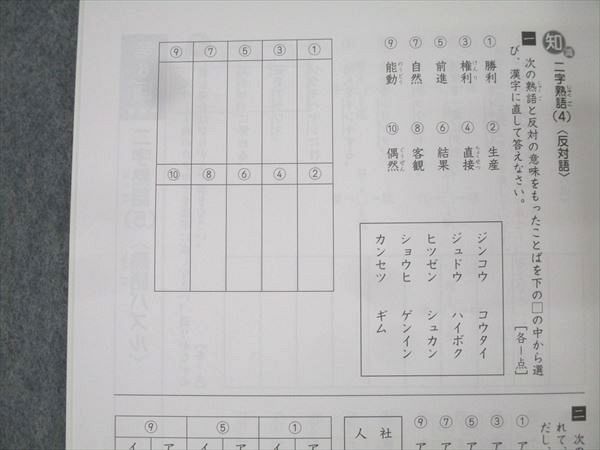 知識 二字熟語(4)〈反対語〉
一 次の熟語と反対の意味をもったことばを下の□の中から選
び、漢字に直して答えなさい。 [各1点]
① 勝利 ② 生産
③ 権利 ④ 直接
⑤ 前進 ⑥ 結果
⑦ 自然 ⑧ 客観
⑨ 能動 ⑩ 偶然
ジンコウ コウタイ
ジュドウ ハイボク
ヒツゼン シュカン
ショウヒ ゲンイン
カンセツ ギム
① ②
③ ④
⑤ ⑥
⑦ ⑧
⑨ ⑩
二 次の
れて、
だし、
① ア
③ ア
⑤ ア
⑦ ア
⑨ ア
社
人
①
ア
イ
⑤
ア
イ
⑨
ア
イ